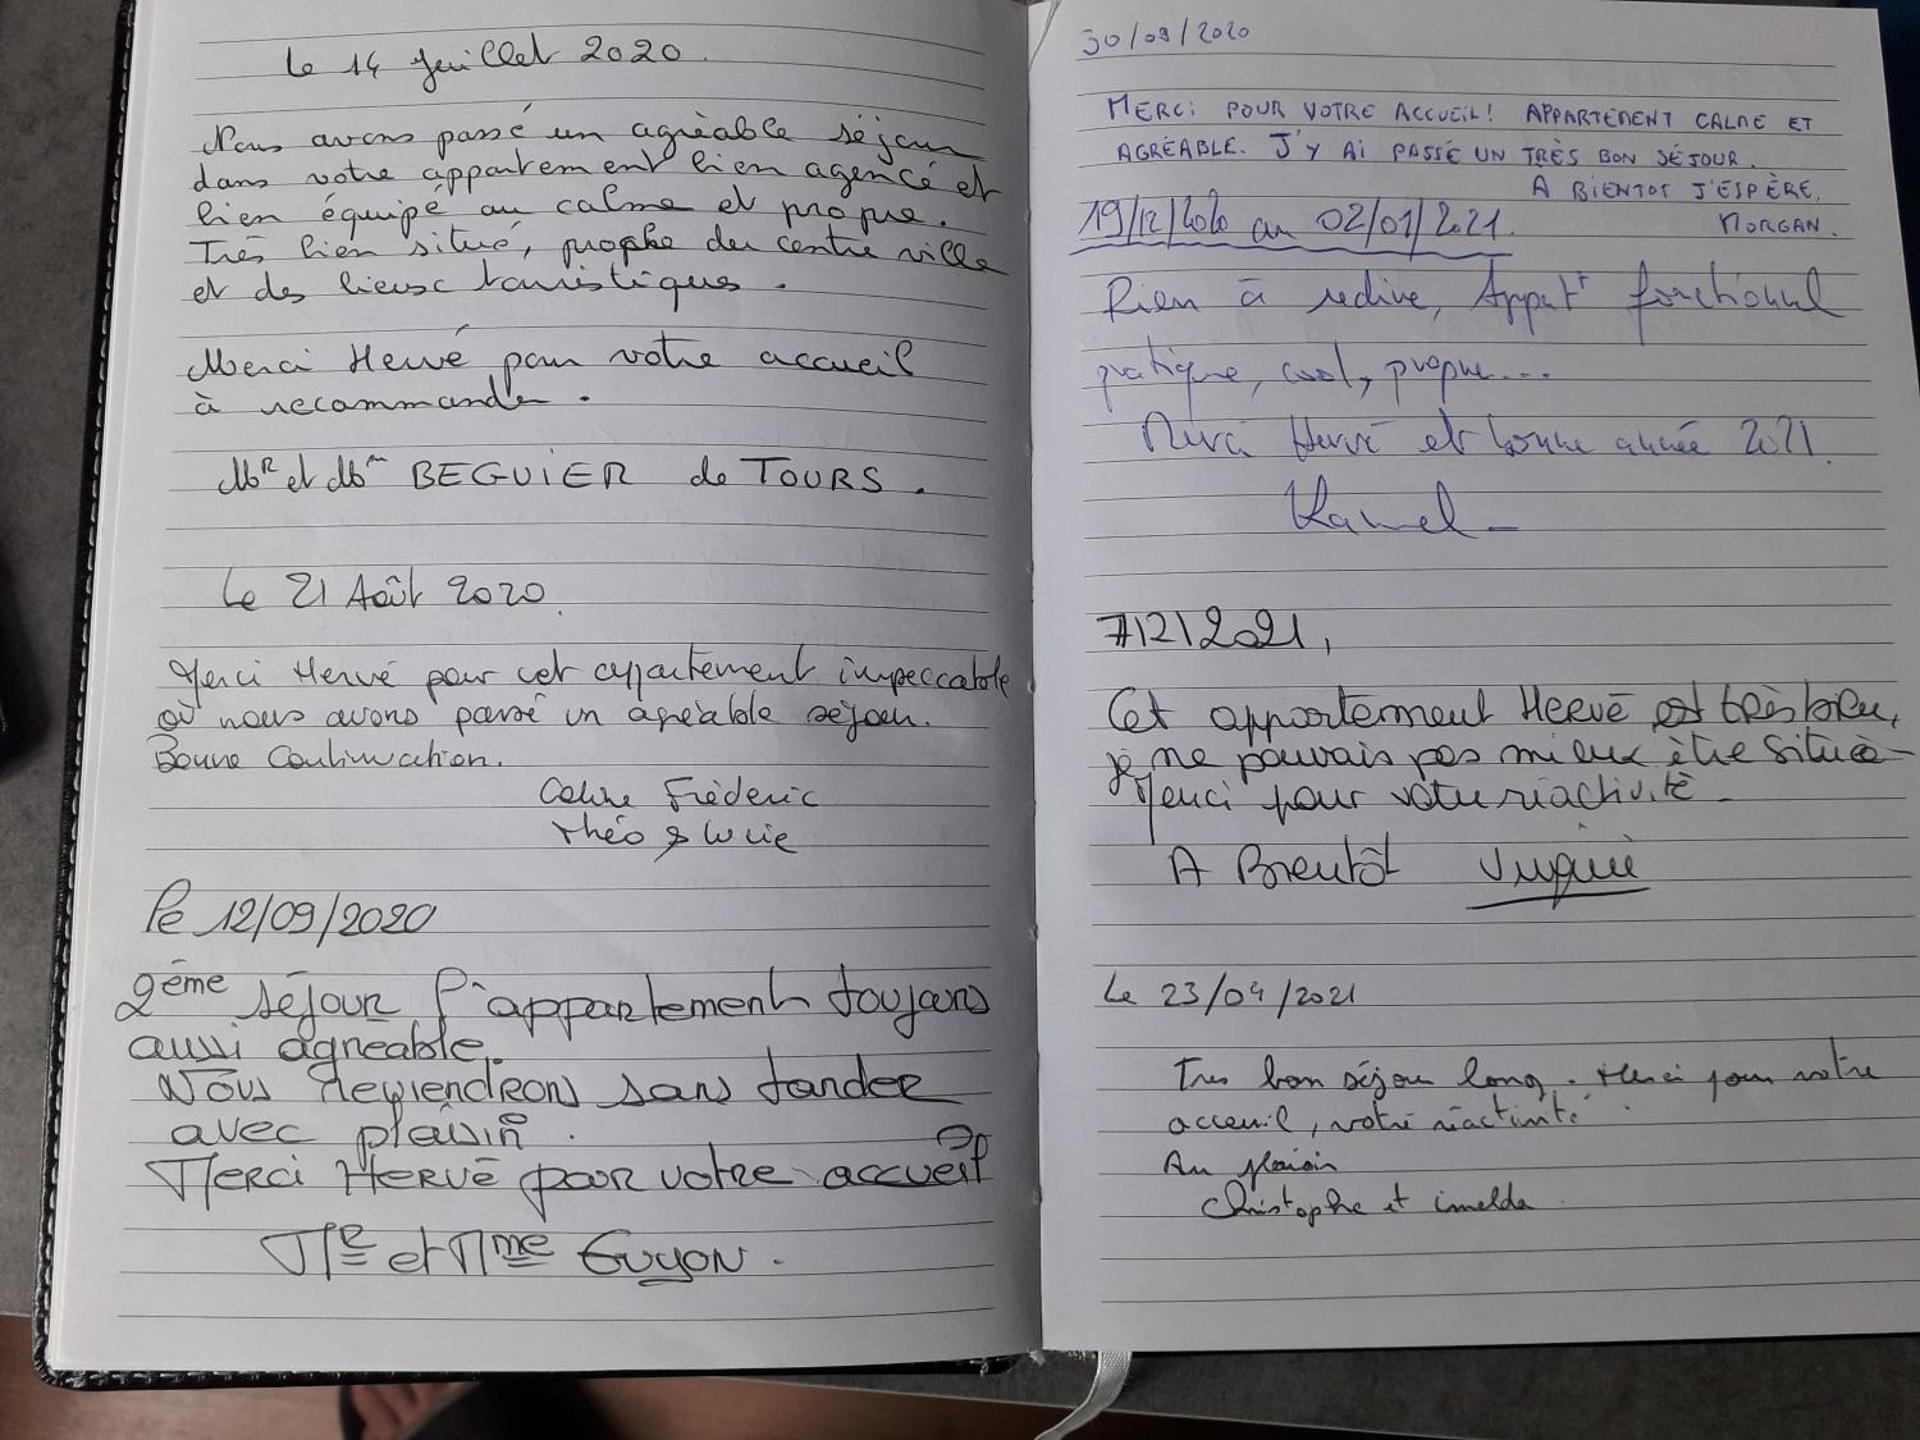 Le 14 Juillet 2020.
Nous avons passé un agréable séjour
dans votre appartement bien agencé et
bien équipé au calme et propre.
Très bien situé, proche du centre ville
et des lieux touristiques.
Merci Hervé pour votre accueil
à recommander.
Mr et Mme BEGUIER de TOURS.
Le 21 Août 2020.
Merci Hervé pour cet appartement impeccable
où nous avons passé un agréable séjour.
Bonne Continuation.
Celine Fréderic
Théo & Lucie
Le 12/09/2020
2ème séjour l'appartement toujours
aussi agreable.
Nous Reviendrons sans tarder
avec plaisir.
Merci Hervé pour votre accueil
Mr et Mme Guyon.
30/09/2020
MERCI POUR VOTRE ACCUEIL! APPARTEMENT CALME ET
AGRÉABLE. J'Y AI PASSÉ UN TRÈS BON SÉJOUR.
A BIENTOT J'ESPÈRE.
MORGAN.
19/12/2020 au 02/01/2021.
Rien à redire, Appart fonctionnel
pratique, cool, propre...
Merci Hervé et bonne année 2021.
Kamel
7/2/2021,
Cet appartement Hervé est très bien,
je ne pouvais pas mieux être située-
Merci pour votre réactivité-
A Bientôt Virginie
Le 23/04/2021
Tres bon séjour long. Merci pour votre
acceuil, votre réactivité.
Au plaisir
Christophe et imelda.